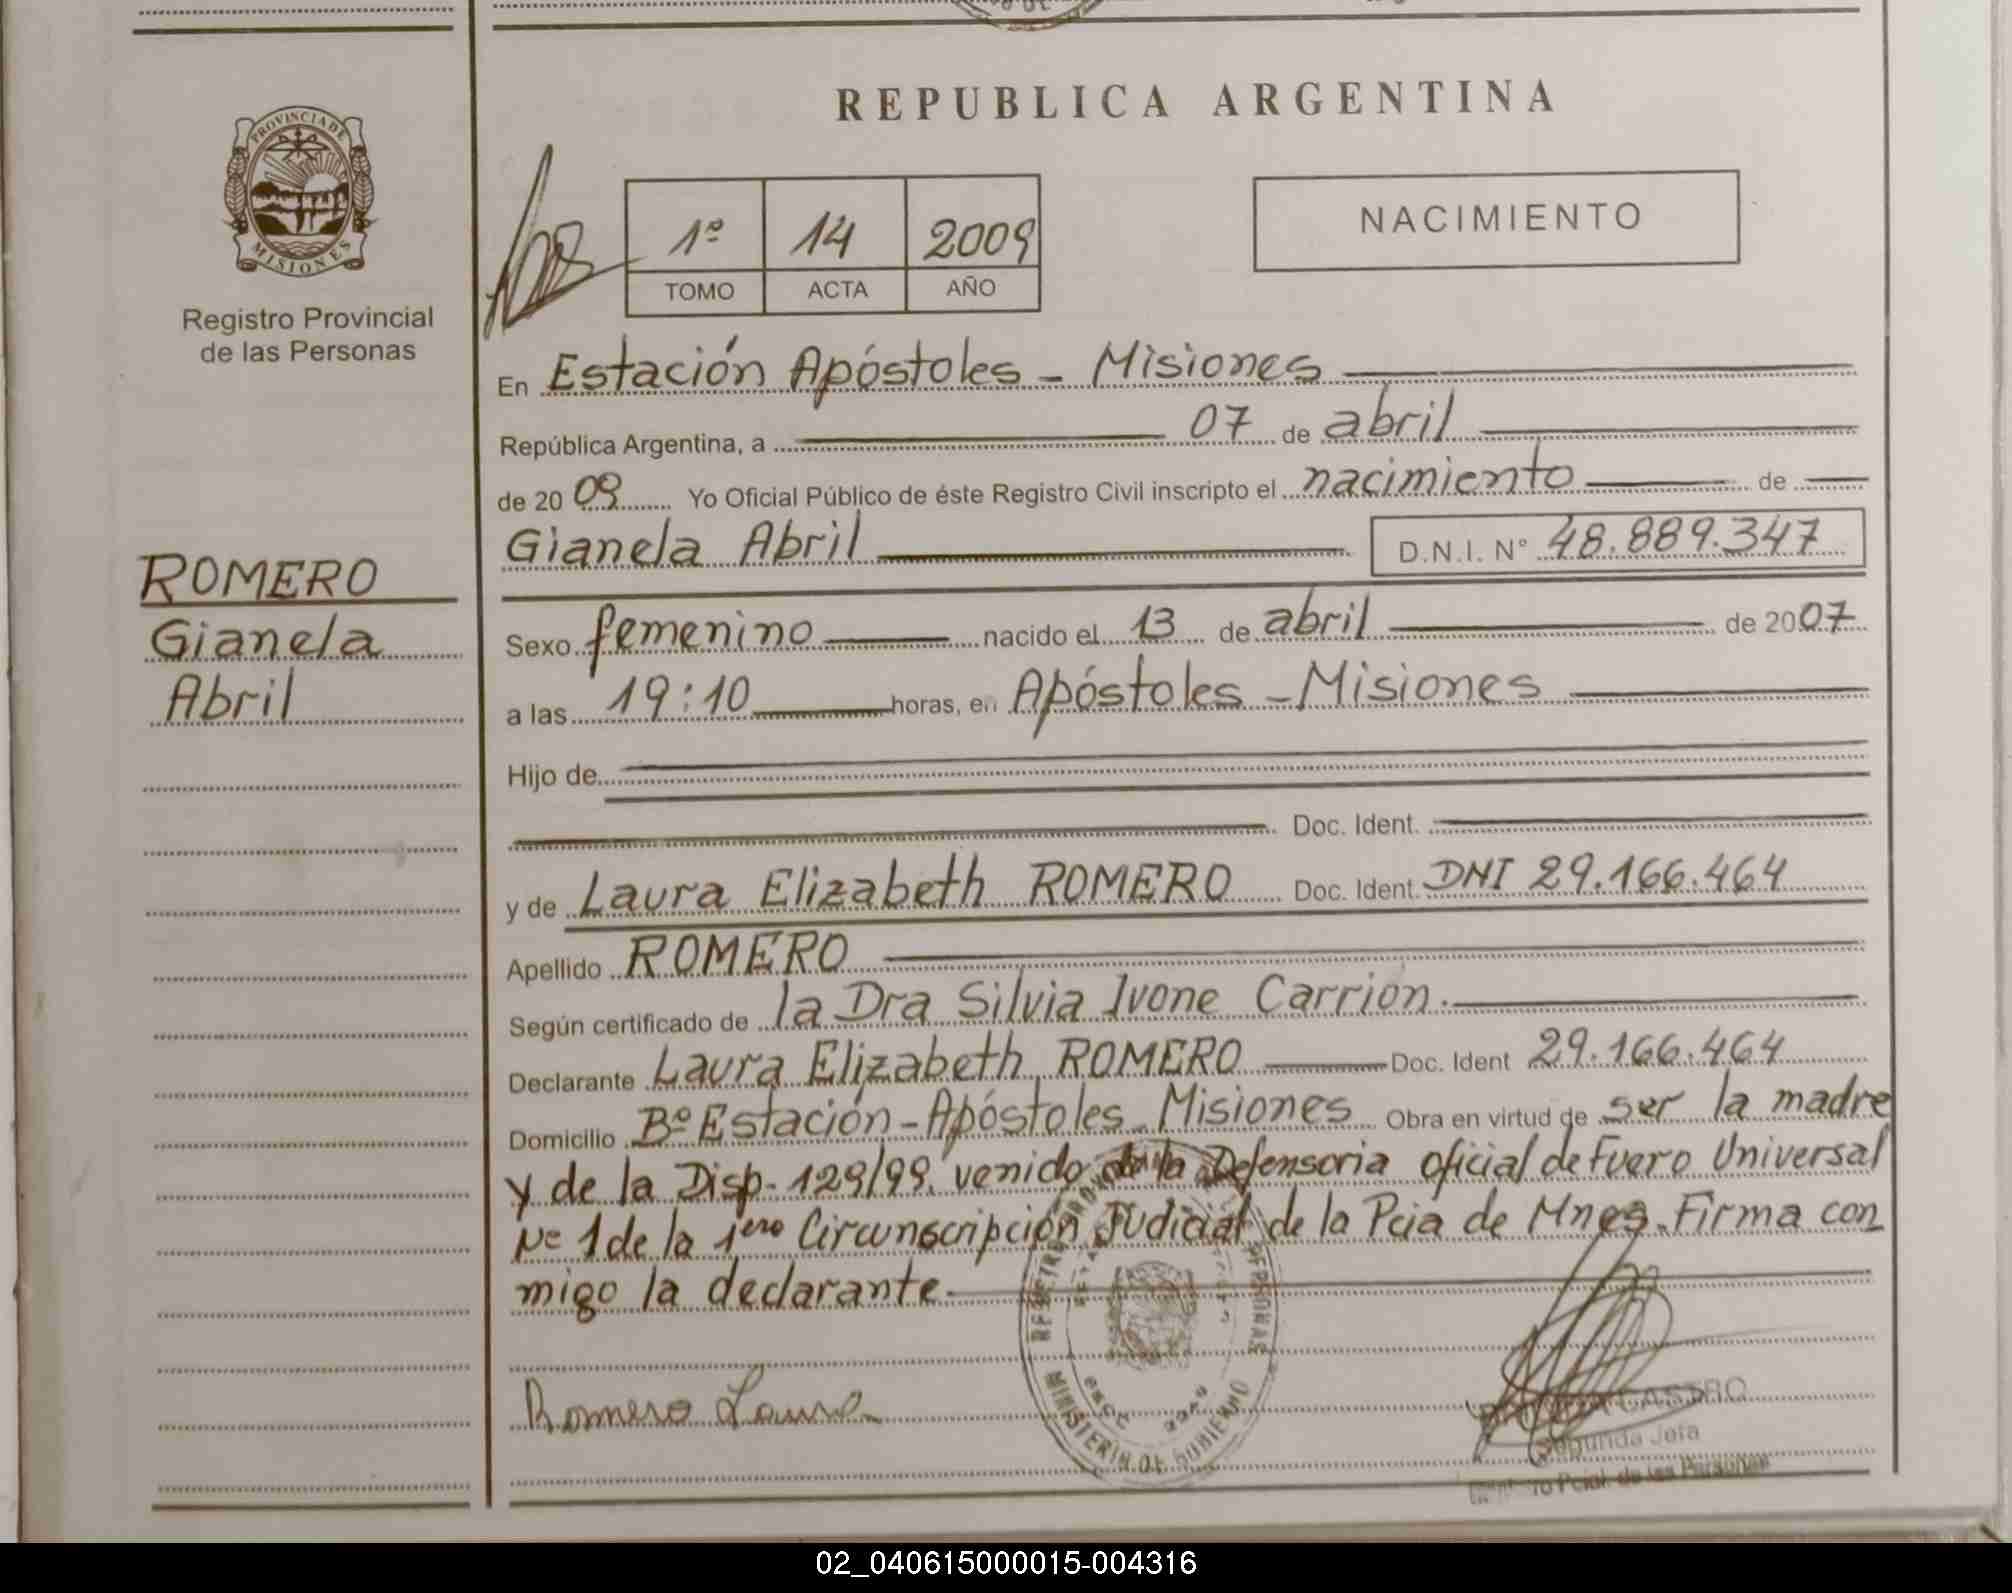 REPUBLICA ARGENTINA
PROVINCIA DE
MISIONES
Registro Provincial
de las Personas
1º 14 2009
TOMO ACTA AÑO
NACIMIENTO
En Estación Apóstoles - Misiones
República Argentina, a 07 de abril
de 2009 Yo Oficial Público de éste Registro Civil inscripto el nacimiento de
Gianela Abril D.N.I. Nº 48.889.347
ROMERO
Gianela
Abril
Sexo femenino nacido el 13 de abril de 2007
a las 19:10 horas, en Apóstoles - Misiones
Hijo de
Doc. Ident.
y de Laura Elizabeth ROMERO Doc. Ident. DNI 29.166.464
Apellido ROMERO
Según certificado de la Dra Silvia Ivone Carrion.
Declarante Laura Elizabeth ROMERO Doc. Ident 29.166.464
Domicilio Bº Estación - Apóstoles - Misiones Obra en virtud de ser la madre
y de la Disp. 129/99. venido de la Defensoria oficial de Fuero Universal
Nº 1 de la 1era Circunscripción Judicial de la Pcia de Mnes. Firma con
migo la declarante.
Romero Laura
CASTRO
Segunda Jefa
Pcial. de las Personas
PERSONAS
MINISTERIO DE GOBIERNO
02_040615000015-004316